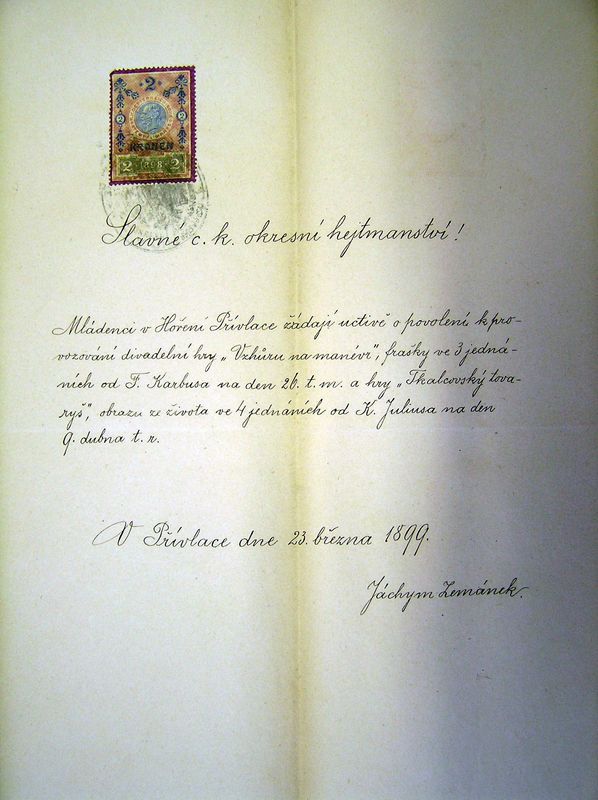 2
2 2
KRONEN
2 1898 2
Slavné c. k. okresní hejtmanství!
Mládenci v Hoření Přívlace žádají uctivě o povolení k pro-
vozování divadelní hry „Vzhůru na manévr", frašky ve 3 jedná-
ních od F. Karbusa na den 26. t. m. a hry „Tkalcovský tova-
ryš", obrazu ze života ve 4 jednáních od K. Juliusa na den
9. dubna t. r.
V Přívlace dne 23. března 1899.
Jáchym Zemánek.